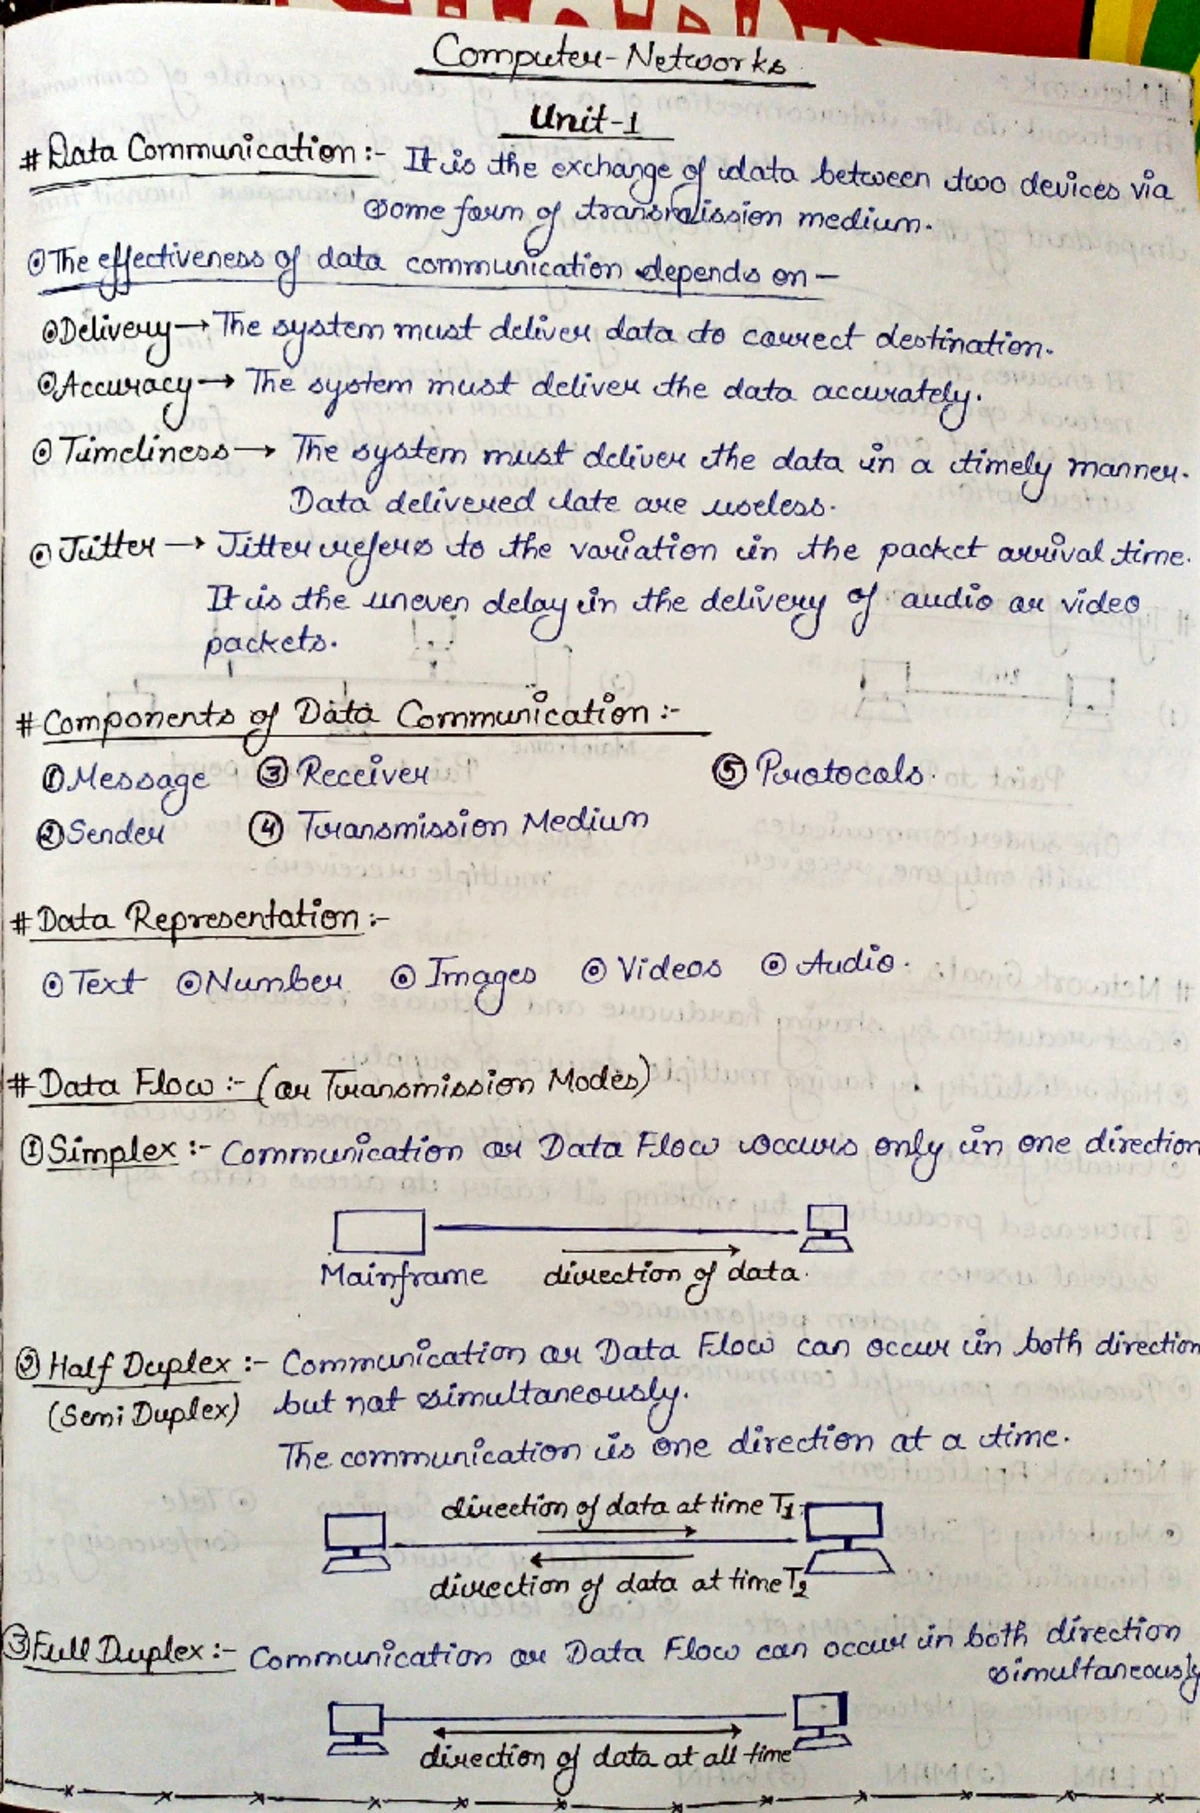 Computer-Networks
Unit-1
# Data Communication :- It is the exchange of data between two devices via
some form of transmission medium.
⊙ The effectiveness of data communication depends on —
⊙ Delivery → The system must deliver data to correct destination.
⊙ Accuracy → The system must deliver the data accurately.
⊙ Timeliness → The system must deliver the data in a timely manner.
Data delivered late are useless.
⊙ Jitter → Jitter refers to the variation in the packet arrival time.
It is the uneven delay in the delivery of audio or video
packets.
# Components of Data Communication :-
① Message ③ Receiver ⑤ Protocols.
② Sender ④ Transmission Medium
# Data Representation :-
⊙ Text ⊙ Number ⊙ Images ⊙ Videos ⊙ Audio.
# Data Flow :- (or Transmission Modes)
① Simplex :- Communication or Data Flow occurs only in one direction
Mainframe direction of data.
② Half Duplex :- Communication or Data Flow can occur in both direction
(Semi Duplex) but not simultaneously.
The communication is one direction at a time.
direction of data at time T1
direction of data at time T2
③ Full Duplex :- Communication or Data Flow can occur in both direction
simultaneously
direction of data at all time